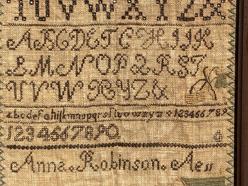 TUVWXYZ&
ABCDEFGHIJK
LMNOPQRST
UVWXYZ&
abcdefghiklmnopqrstuvwxyz 123456789
1234567890
Anna Robinson Ae